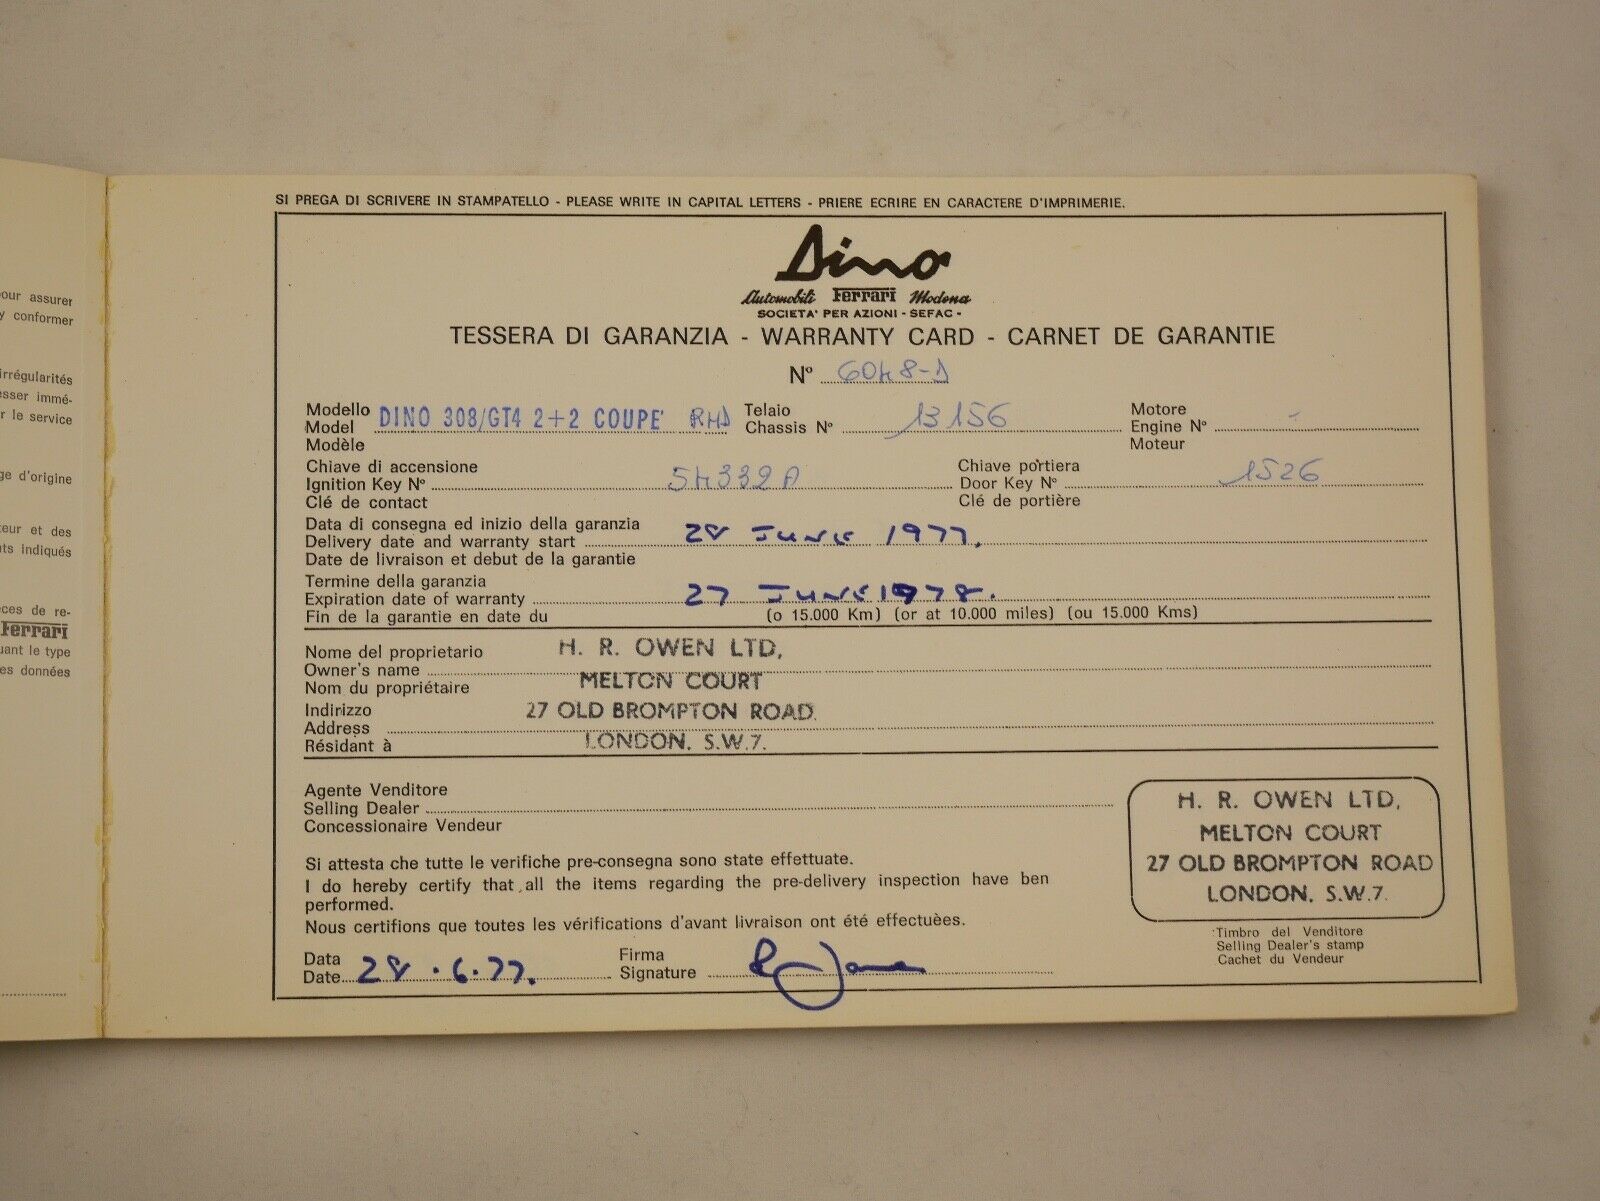 our assurer
y conformer
irrégularités
esser immé-
r le service
ge d'origine
teur et des
nts indiqués
èces de re-
Ferrari
uant le type
es données
SI PREGA DI SCRIVERE IN STAMPATELLO - PLEASE WRITE IN CAPITAL LETTERS - PRIERE ECRIRE EN CARACTERE D'IMPRIMERIE.
Dino
Automobili Ferrari Modena
SOCIETA' PER AZIONI - SEFAC -
TESSERA DI GARANZIA - WARRANTY CARD - CARNET DE GARANTIE
N° 6048-D
Modello
Model DINO 308/GT4 2+2 COUPE' RHD
Modèle
Telaio
Chassis N° 13156
Motore
Engine N° -
Moteur
Chiave di accensione
Ignition Key N° 54332A
Clé de contact
Chiave portiera
Door Key N° 1526
Clé de portière
Data di consegna ed inizio della garanzia
Delivery date and warranty start 28 JUNE 1977.
Date de livraison et debut de la garantie
Termine della garanzia
Expiration date of warranty 27 JUNE 1978.
Fin de la garantie en date du (o 15.000 Km) (or at 10.000 miles) (ou 15.000 Kms)
Nome del proprietario H. R. OWEN LTD,
Owner's name
Nom du propriétaire MELTON COURT
Indirizzo 27 OLD BROMPTON ROAD.
Address
Résidant à LONDON. S.W.7.
Agente Venditore
Selling Dealer
Concessionaire Vendeur
Si attesta che tutte le verifiche pre-consegna sono state effettuate.
I do hereby certify that all the items regarding the pre-delivery inspection have ben
performed.
Nous certifions que toutes les vérifications d'avant livraison ont été effectuèes.
Data
Date 28.6.77.
Firma
Signature
H. R. OWEN LTD,
MELTON COURT
27 OLD BROMPTON ROAD
LONDON. S.W.7.
Timbro del Venditore
Selling Dealer's stamp
Cachet du Vendeur